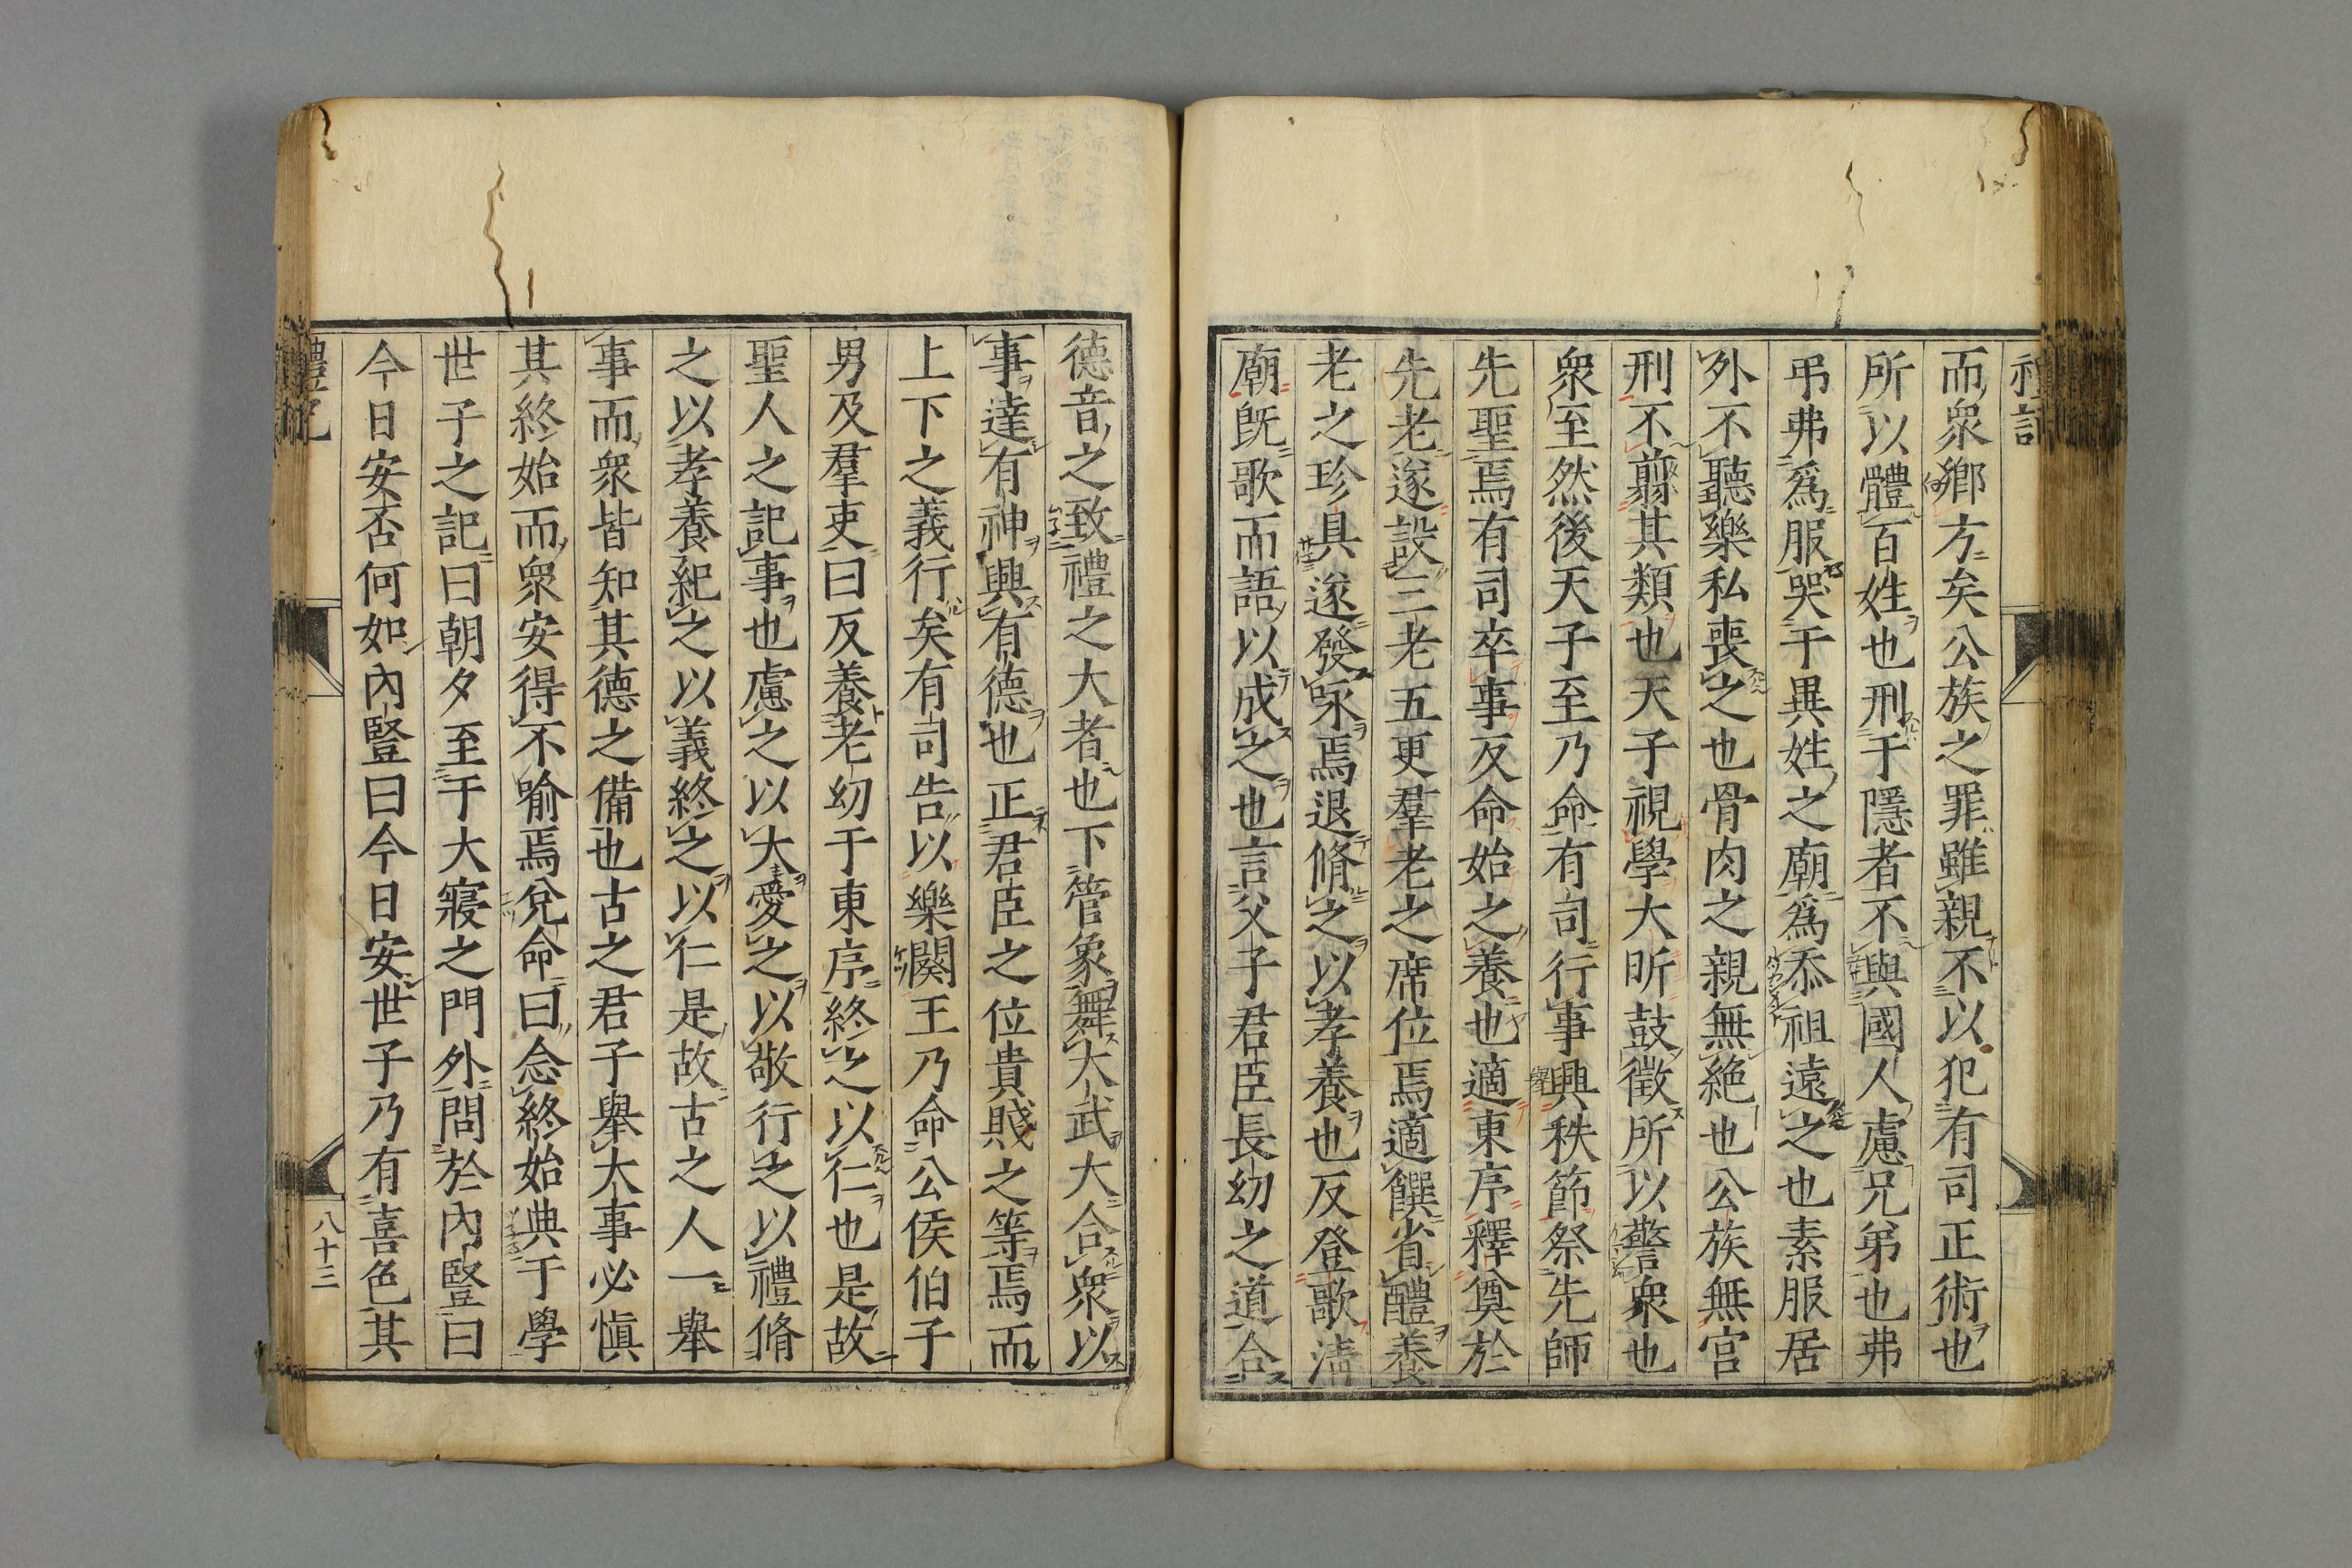 禮記
而衆鄉方矣公族之罪雖親不以犯有司正術也
所以體百姓也刑于隱者不與國人慮兄弟也弗
弔弗爲服哭于異姓之廟爲忝祖遠之也素服居
外不聽樂私喪之也骨肉之親無絶也公族無宮
刑不翦其類也天子視學大昕鼓徵所以警衆也
衆至然後天子至乃命有司行事興秩節祭先師
先聖焉有司卒事反命始之養也適東序釋奠於
先老遂設三老五更羣老之席位焉適饌省醴養
老之珍具遂發咏焉退脩之以孝養也反登歌淸
廟旣歌而語以成之也言父子君臣長幼之道合
德音之致禮之大者也下管象舞大武大合衆以
事達有神興有德也正君臣之位貴賤之等焉而
上下之義行矣有司告以樂闋王乃命公侯伯子
男及羣吏曰反養老幼于東序終之以仁也是故
聖人之記事也慮之以大愛之以敬行之以禮脩
之以孝養紀之以義終之以仁是故古之人一舉
事而衆皆知其德之備也古之君子舉大事必愼
其終始而衆安得不喻焉兌命曰念終始典于學
世子之記曰朝夕至于大寢之門外問於內豎曰
今日安否何如內豎曰今日安世子乃有喜色其
禮記
八十三